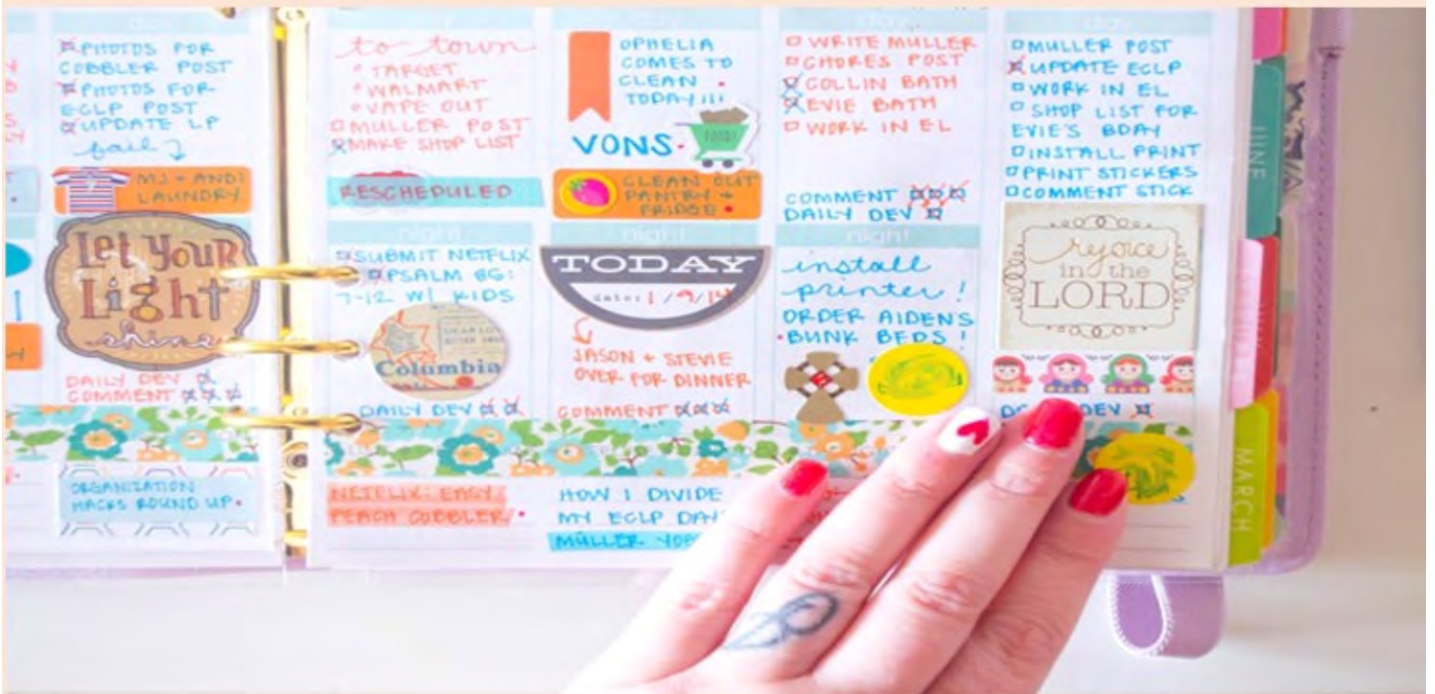 PHOTOS FOR
COBBLER POST
PHOTOS FOR
ECLP POST
UPDATE LP
fail
MJ + ANDI
LAUNDRY
Let Your
Light
shine
DAILY DEV
COMMENT
ORGANIZATION
HACKS ROUND UP
to town
TARGET
WALMART
VAPE OUT
MULLER POST
MAKE SHOP LIST
RESCHEDULED
night
SUBMIT NETFLIX
PSALM 86:
7-12 W/ KIDS
Columbia
DAILY DEV
NETFLIX: EASY
PEACH COBBLER
day
OPHELIA
COMES TO
CLEAN
TODAY!!!
VONS
FOOD!
CLEAN OUT
PANTRY +
FRIDGE
night
TODAY
date: 1/9/14
JASON + STEVIE
OVER FOR DINNER
COMMENT
HOW I DIVIDE
MY ECLP DAY
MÜLLER
day
WRITE MULLER
CHORES POST
COLLIN BATH
EVIE BATH
WORK IN EL
COMMENT
DAILY DEV
night
install
printer!
ORDER AIDEN'S
BUNK BEDS!
day
MULLER POST
UPDATE ECLP
WORK IN EL
SHOP LIST FOR
EVIE'S BDAY
INSTALL PRINT
PRINT STICKERS
COMMENT STICK
rejoice
in the
LORD
DEV
JUNE
MARCH